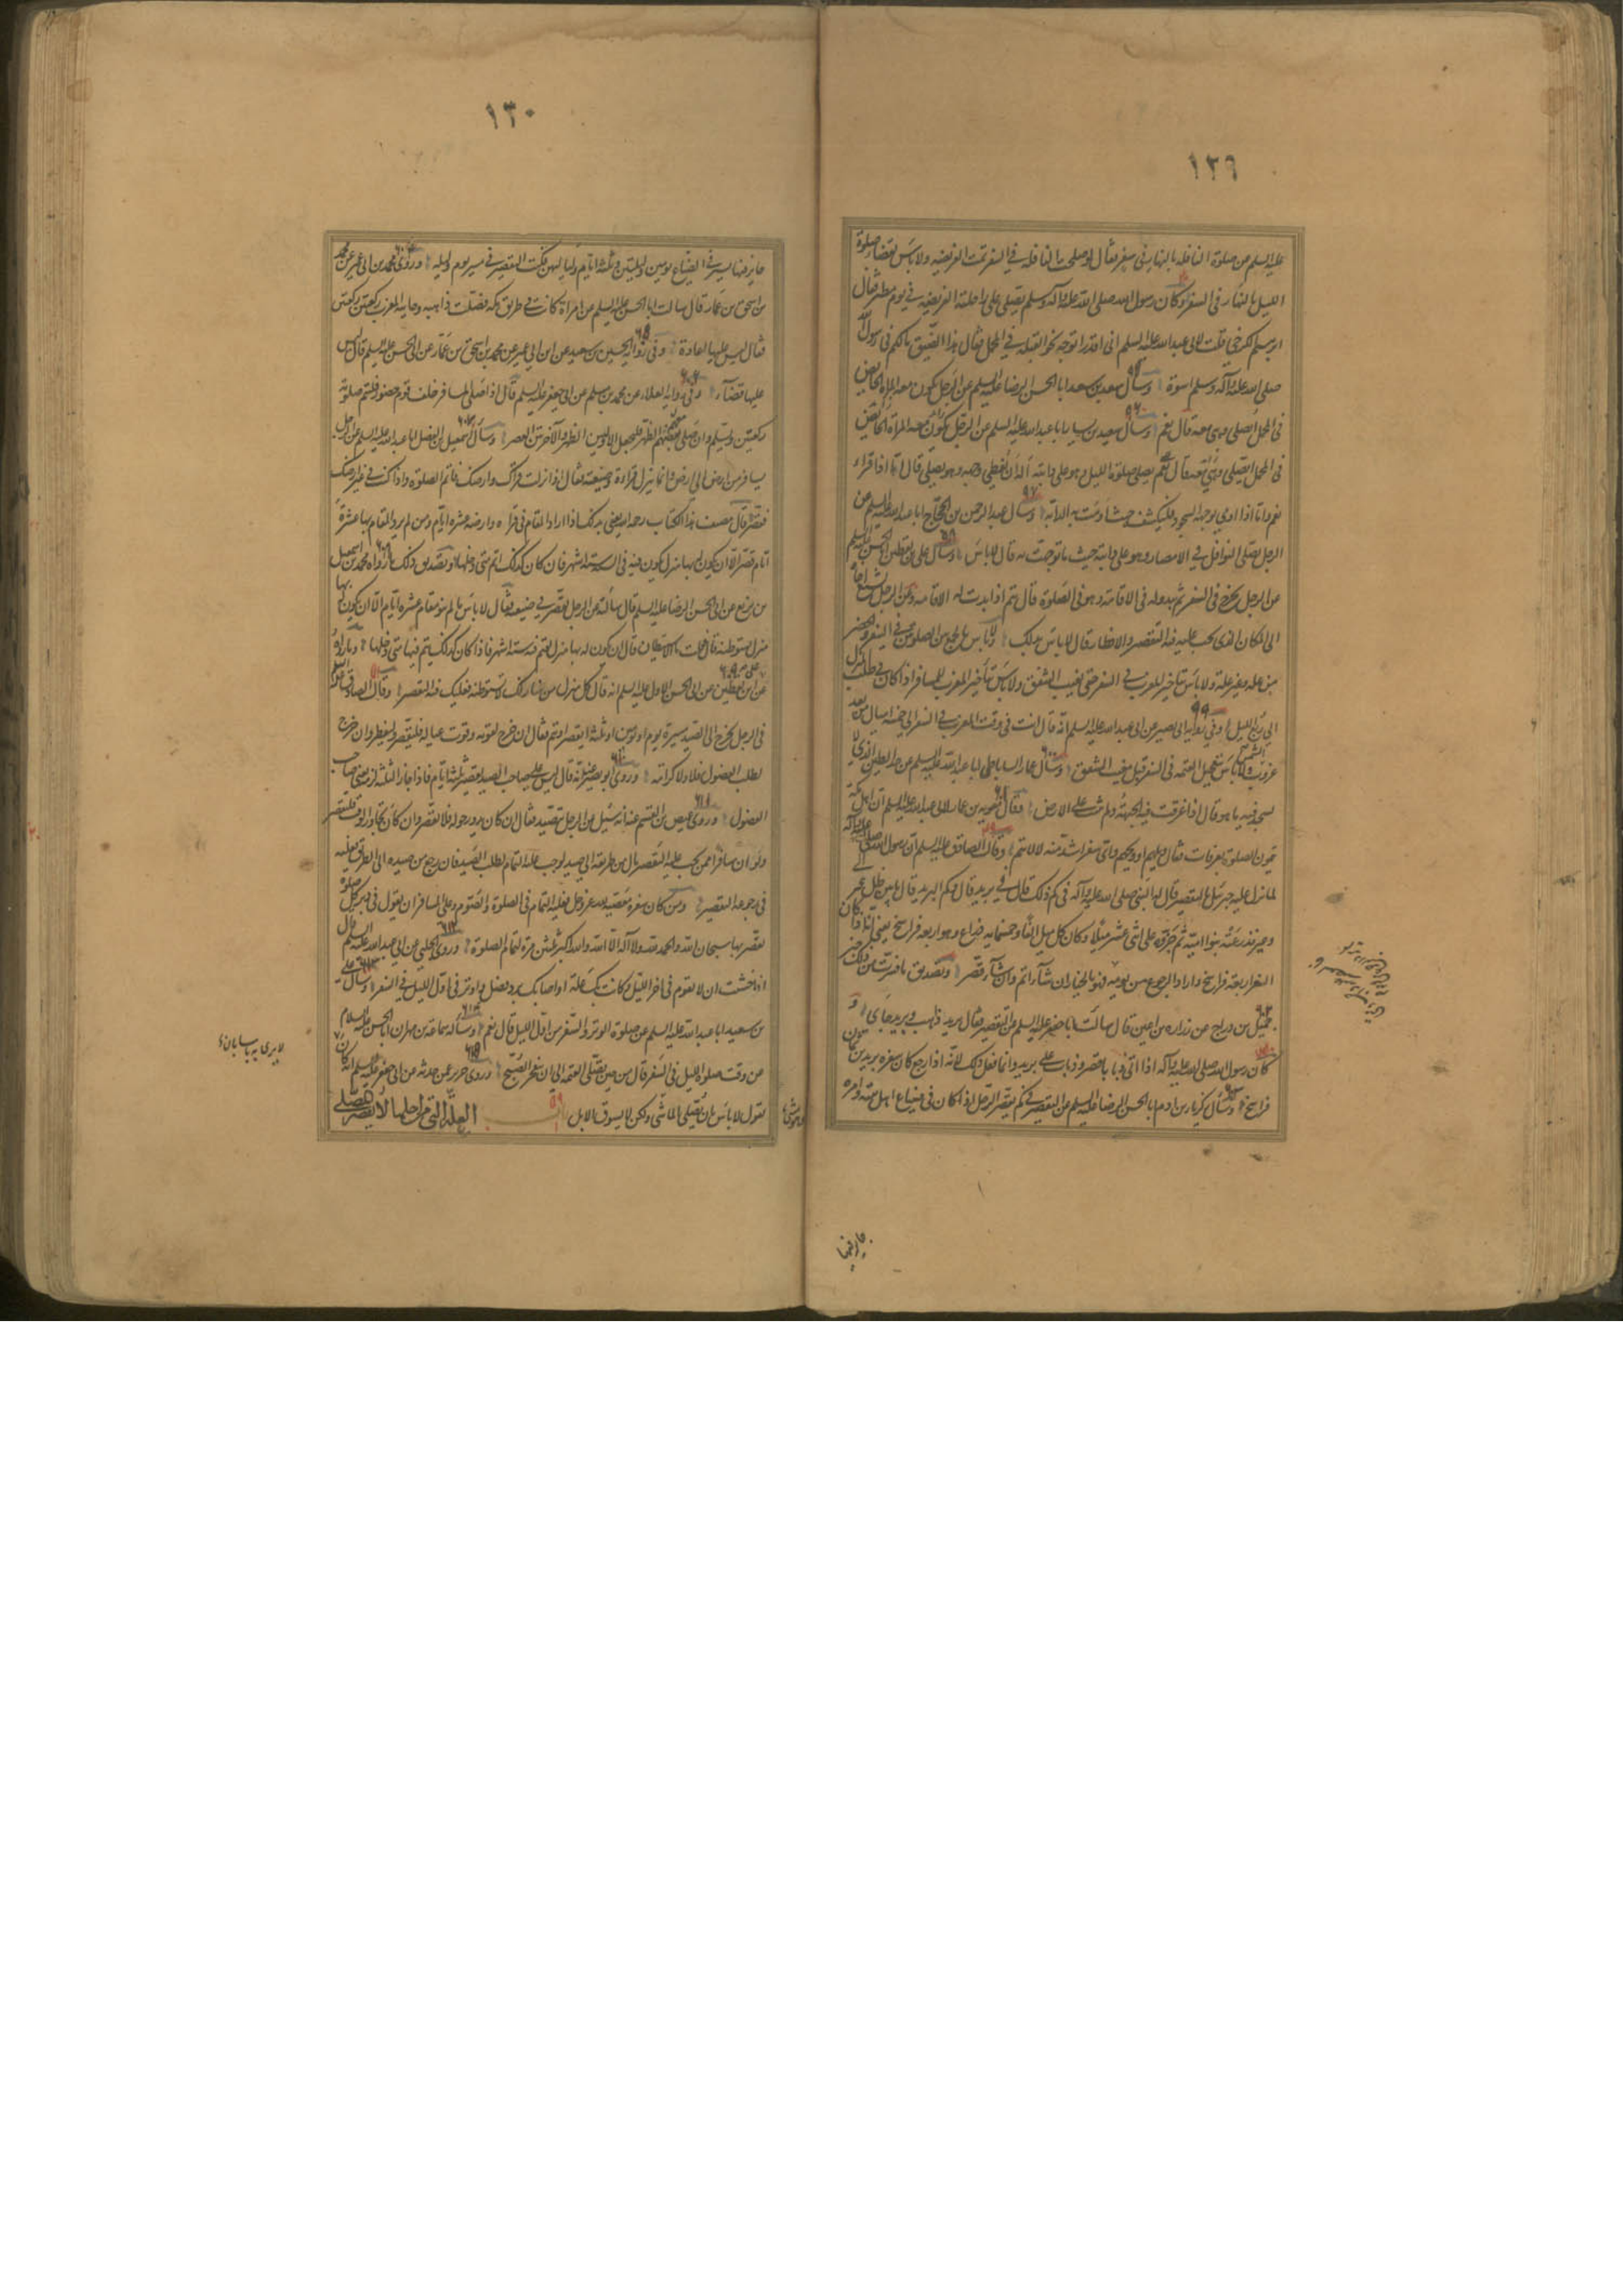 ١٢٩
عليه السلم عن صلوة النافلة بالنهار في سفر فقال لو صلحت النافلة في السفر تمت الفريضه ولا باس بقضاء صلوة
الليل بالنهار في السفر وكان رسول الله صلى الله عليه وآله وسلم يصلى على راحلته الفريضه في يوم مطر وقال
ابرهيم الكرخى قلت لابى عبد الله عليه السلم انى اقدر اتوجه نحو القبلة في المحمل فقال هذا الضيق مالكم في رسول الله
صلى الله عليه وآله وسلم اسوة وسأل سعد بن سعد ابا الحسن الرضا عليه السلم عن الرجل تكون معه المرأة الحايض
في المحمل أيصلى وهى معه قال نعم وسأل سعيد بن يسار ابا عبد الله عليه السلم عن الرجل
يصلى صلوة الليل وهو على دابته أله ان يغطى وجهه وهو يصلى قال اما اذا قراء
فنعم واما اذا اومى بوجهه للسجود فليكشفه حيث اومت به الدابه وسأل عبد الرحمن بن الحجاج ابا عبد الله عليه السلم عن
الرجل يصلى النوافل في الامصار وهو على دابته حيث ما توجهت به قال لا باس وسأل على بن يقطين ابا الحسن عليه السلم
عن الرجل يخرج في السفر ثم يبدو له في الاقامة وهو في الصلوة قال يتم اذا بدت له الاقامة وعن الرجل يشيع اخاه
الى المكان الذى يجب عليه فيه التقصير والافطار قال لا باس بذلك ولا باس بالجمع بين الصلوتين في السفر والحضر
من علة وغير علة ولا باس بتاخير المغرب في السفر حتى يغيب الشفق ولا باس بتاخير المغرب للمسافر اذا كان في طلب المنزل
الى ربع الليل وفي رواية ابى بصير عن ابى عبد الله عليه السلم انه قال انت في وقت المغرب في السفر الى خمسة اميال من بعد
غروب الشمس ولا باس بتعجيل العتمه في السفر قبل مغيب الشفق وسأل عمار الساباطى ابا عبد الله عليه السلم عن حد الطين الذى لا
يسجد فيه ما هو قال اذا غرقت فيه الجبهة ولم تثبت على الارض وقال معوية بن عمار لابى عبد الله عليه السلم ان اهل مكة
يتمون الصلوة بعرفات فقال ويلهم او ويحهم واى سفر اشد منه لا لا يتم وقال الصادق عليه السلم ان رسول الله صلى الله عليه وآله
لما نزل عليه جبرئيل بالتقصير قال له النبى صلى الله عليه وآله في كم ذلك قال في بريد قال وكم البريد قال ما بين ظل عير
وعير فذرعته بنو امية ثم جزوه على اثنى عشر ميلا فكان كل ميل الفا وخمسمايه ذراع وهو اربعة فراسخ يعنى انه اذا كان
السفر اربعة فراسخ واراد الرجوع من يومه فهو بالخيار ان شاء اتم وان شاء قصر وتصديق ما فسرت من ذلك خبر
جميل بن دراج عن زراره بن اعين قال سالت ابا جعفر عليه السلم عن التقصير فقال بريد ذاهب وبريد جاى و
كان رسول الله صلى الله عليه وآله اذا اتى ذبابا قصر وذباب على بريد وانما فعل ذلك لانه اذا رجع كان سفره بريدين ثمانية
فراسخ وسأل زكريا بن ادم ابا الحسن الرضا عليه السلم عن التقصير في كم يقصر الرجل اذا كان في ضياع اهل بيته وامره
جايز فيها
١٣٠
جايز فيها يسير في الضياع يومين وليلتين وثلثة ايام ولياليهن فكتب التقصير في مسير يوم وليله وروى محمد بن ابى عمير عن محمد
بن اسحق بن عمار قال سالت ابا الحسن عليه السلم عن امراة كانت في طريق مكه فصلت ذاهبه وجايه المغرب ركعتين ركعتين
فقال ليس عليها اعادة وفي رواية الحسين بن سعيد عن ابن ابى عمير عن محمد بن اسحق بن عمار عن ابى الحسن عليه السلم قال ليس
عليها قضاء وفي رواية العلاء عن محمد بن مسلم عن ابى جعفر عليه السلم قال اذا صلى المسافر خلف قوم حضور فليتم صلوته
ركعتين ويسلم وان صلى معهم الظهر فليجعل الاوليين الظهر والآخرتين العصر وسأل اسمعيل بن الفضل ابا عبد الله عليه السلم عن رجل
يسافر من ارض الى ارض وانما ينزل قراه وضيعته فقال اذا نزلت قراك وارضك فاتم الصلوة واذا كنت في غير ارضك
فقصر قال مصنف هذا الكتاب رحمه الله يعنى بذلك اذا اراد المقام في قراه وارضه عشرة ايام ومن لم يرد المقام بها عشرة
ايام قصر الا ان يكون له بها منزل يكون فيه في السنة ستة اشهر فان كان كذلك اتم متى دخلها وتصديق ذلك ما رواه محمد بن اسمعيل
بن بزيع عن ابى الحسن الرضا عليه السلم قال سألته عن الرجل يقصر في ضيعته فقال لا باس ما لم ينو مقام عشرة ايام الا ان يكون له بها
منزل يستوطنه قال قلت ما الاستيطان قال ان يكون له بها منزل يقيم فيه ستة اشهر فاذا كان كذلك يتم فيها متى دخلها وما رواه
على بن يقطين عن ابى الحسن الاول عليه السلم انه قال كل منزل من منازلك لا تستوطنه فعليك فيه التقصير وقال الصادق عليه السلم
في الرجل يخرج الى الصيد مسيرة يوم او يومين او ثلثة ايقصر او يتم فقال ان خرج لقوته وقوت عياله فليقصر وليفطر وان خرج
لطلب الفضول فلا ولا كرامة وروى ابو بصير عنه انه قال ليس على صاحب الصيد تقصير ثلثة ايام فاذا جاز الثلثة لزمه يعنى صاحب
الفضول وروى عيص بن القسم عنه انه سئل عن الرجل يتصيد فقال ان كان يدور حوله فلا يقصر وان كان تجاوز الوقت فليقصر
ولو ان مسافرا ممن يجب عليه التقصير مال من طريقه الى صيد لوجب عليه التمام لطلب الصيد فان رجع من صيده الى الطريق فعليه
في رجوعه التقصير ومن كان سفره معصية لله عز وجل فعليه التمام في الصلوة والصوم وعلى المسافر ان يقول في دبر كل صلوة
يقصر بها سبحان الله والحمد لله ولا اله الا الله والله اكبر ثلثين مرة لتمام الصلوة وروى الحلبى عن ابى عبد الله عليه السلم قال
اذا خشيت ان لا تقوم في اخر الليل او كانت بك علة او اصابك برد فصل واوتر في اول الليل في السفر وسأل على
بن سعيد ابا عبد الله عليه السلم عن صلوة الليل والوتر في السفر من اول الليل قال نعم وسأله سماعة بن مهران ابا الحسن عليه السلام
عن وقت صلوة الليل في السفر قال من حين تصلى العتمه الى ان ينفجر الصبح وروى حريز عمن حدثه عن ابى جعفر عليه السلم انه كان
لا يرى به باسا بان
يقول لا باس بان يصلى الماشى ولكن لا يسوق الابل باب العلة التى من اجلها لا يقصر المصلى